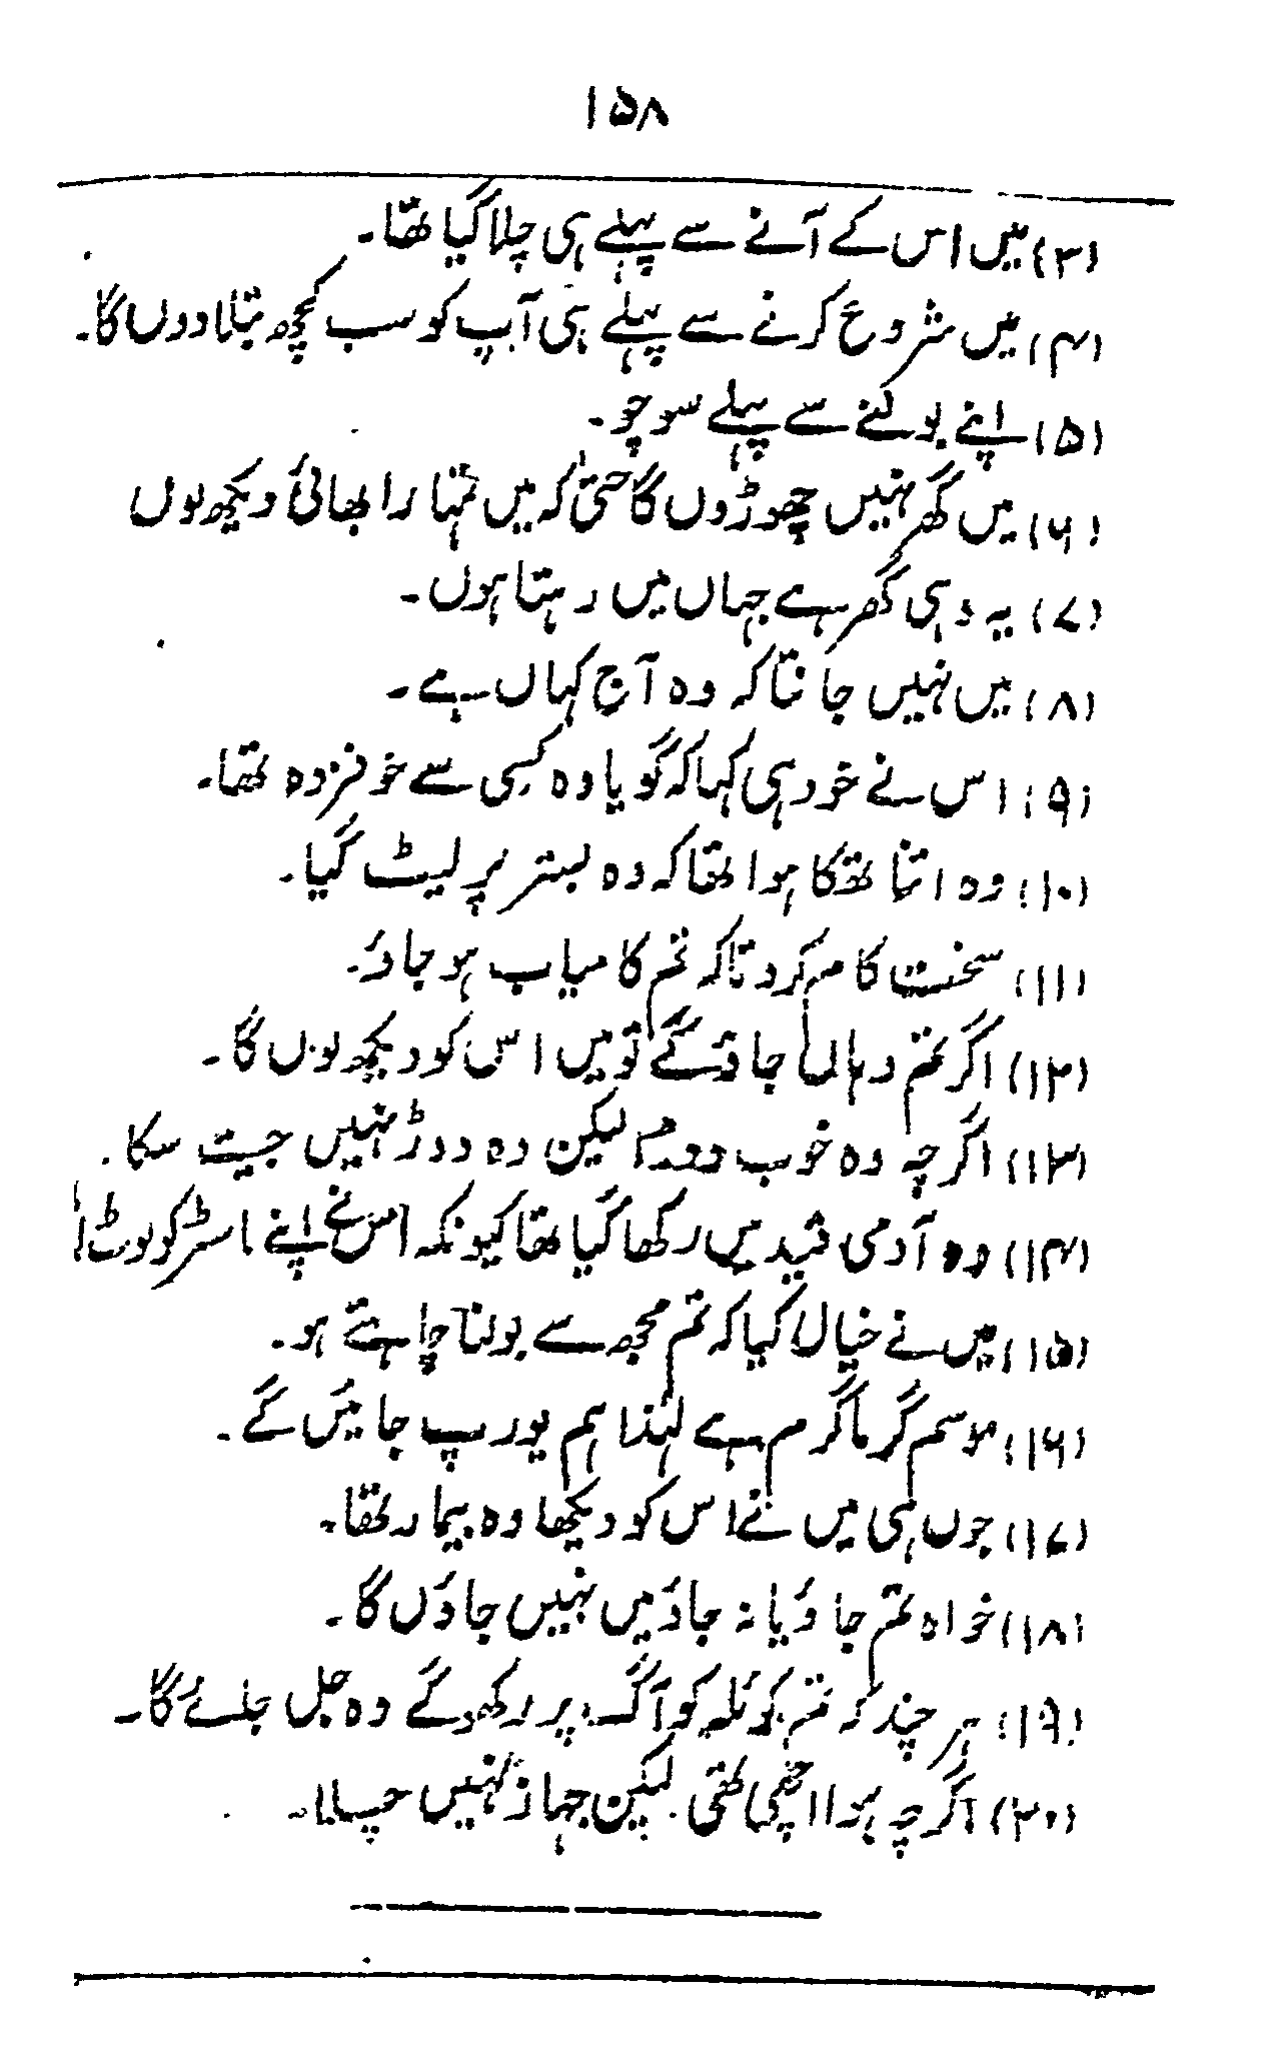 ۱۵۸
(۳) میں اس کے آنے سے پہلے ہی چلا گیا تھا۔
(۴) میں شروع کرنے سے پہلے ہی آپ کو سب کچھ بتلا دوں گا۔
(۵) اپنے بولنے سے پہلے سوچو۔
(۶) میں گھر نہیں چھوڑوں گا حتیٰ کہ میں تمہارا بھائی دیکھ لوں
(۷) یہ وہی گھر ہے جہاں میں رہتا ہوں۔
(۸) میں نہیں جانتا کہ وہ آج کہاں ہے۔
(۹) اس نے خود ہی کہا کہ گویا وہ کسی سے خوفزدہ تھا۔
(۱۰) وہ اتنا تھکا ہوا تھا کہ وہ بستر پر لیٹ گیا۔
(۱۱) سخت کام کرو تاکہ تم کامیاب ہو جاؤ۔
(۱۲) اگر تم وہاں جاؤ گے تو میں اس کو دیکھ لوں گا۔
(۱۳) اگرچہ وہ خوب لیکن وہ دوڑ نہیں جیت سکا۔
(۱۴) وہ آدمی قید میں رکھا گیا تھا کیونکہ اس نے اپنے ماسٹر کو لوٹ
(۱۵) میں نے خیال کیا کہ تم مجھ سے بولنا چاہتے ہو۔
(۱۶) موسم گرما گرم ہے لہٰذا ہم یورپ جائیں گے۔
(۱۷) جوں ہی میں نے اس کو دیکھا وہ بیمار تھا۔
(۱۸) خواہ تم جاؤ یا نہ جاؤ میں نہیں جاؤں گا۔
(۱۹) ہر چند کہ تم کوئلہ کو آگ پر رکھو گے وہ جل جائے گا۔
(۲۰) اگرچہ ہوا اچھی تھی لیکن جہاز نہیں چلایا۔